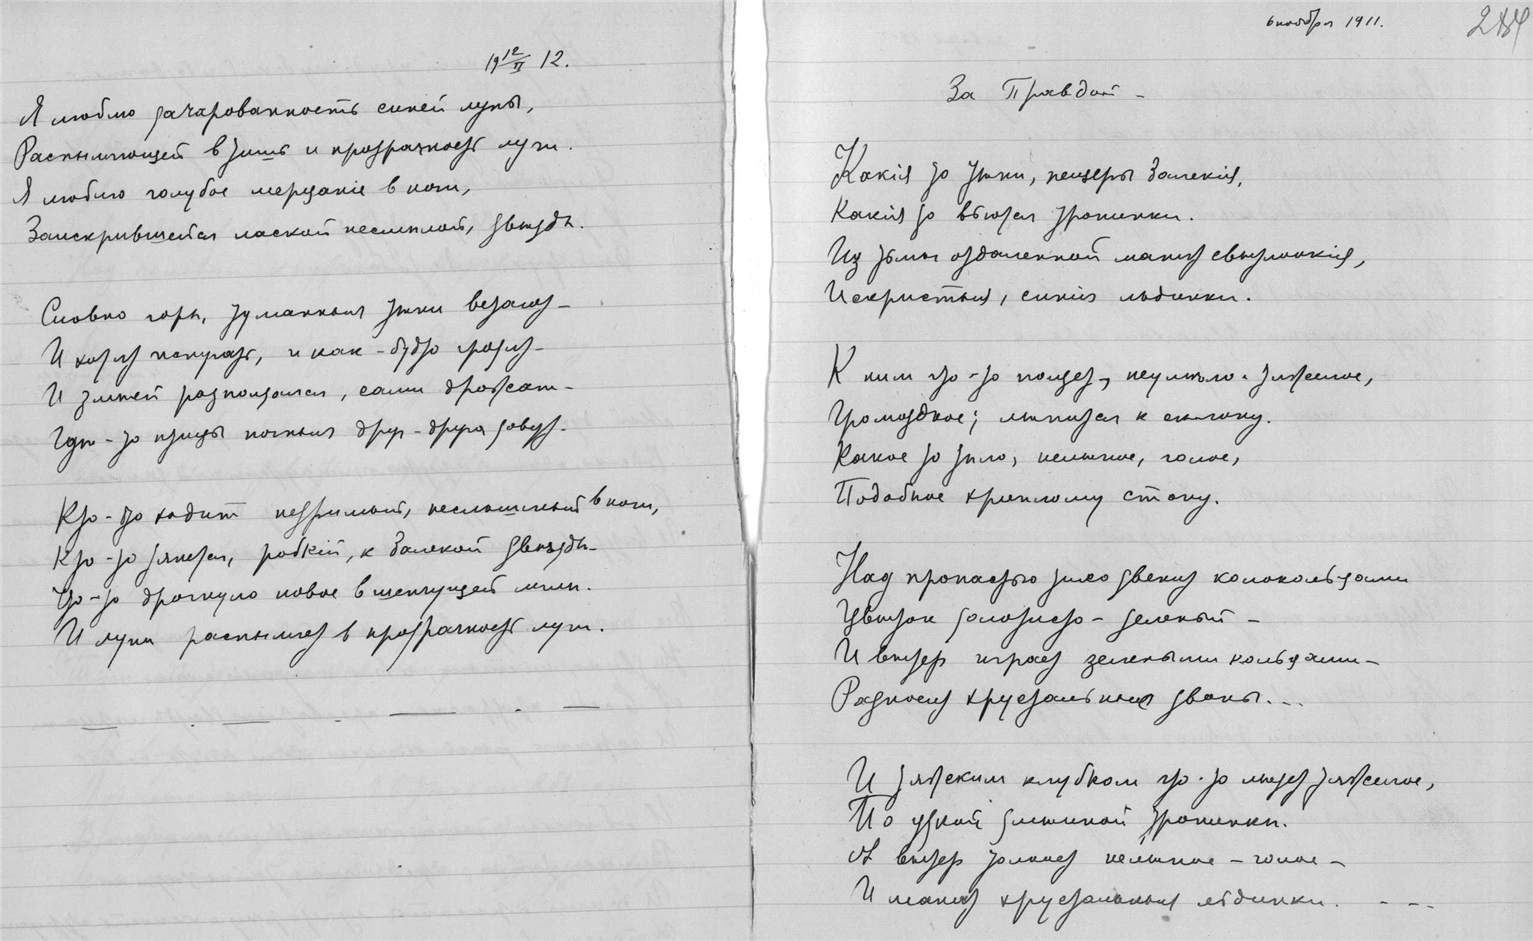 19 12/II 12.
Я люблю зачарованность синей луны,
Распыляющей в тишь и прозрачность лучи.
Я люблю голубое мерцаніе в ночи,
Заискрившейся лаской несмѣлой, звѣзды.
Словно горы, туманныя тѣни встают –
И хотят испугать, и как-будто грозят –
И змѣей расползаются, сами дрожат –
Гдѣ-то птицы ночныя друг-друга зовут –
Кто-то ходит незримый, неслышный в ночи,
Кто-то тянется, робкій, к далекой звѣзды –
Что-то дрогнуло новое в шепчущей мглѣ.
И луна распыляет в прозрачность лучи.
6 ноября 1911.
284
За Правдой –
Какія то тѣни, пещеры далекія,
Какія то вьются тропинки.
Из тьмы отдаленной манят свѣтлоокія,
Искристыя, синія льдинки.
К ним что-то ползет, неумѣло-тяжелое,
Громоздкое; лѣпится к склону.
Какое то тѣло, нелѣпое, голое,
Подобное хриплому стону.
Над пропастью тихо звенит колокольцами
Цвѣток золотисто-зеленый –
И вѣтер играет зелеными кольцами –
Разносит хрустальные звоны...
И тяжским клубком что-то лѣзет тяжелое,
По узкой змѣиной тропинкѣ.
А вѣтер толкает нелѣпое – голое –
И манят хрустальныя льдинки. . - -